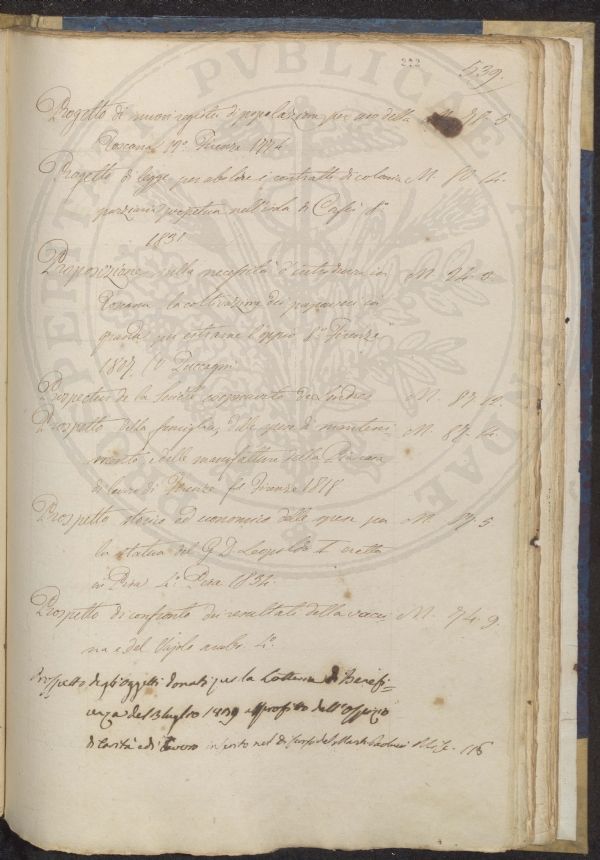 222
539.
Progetto di nuovi registri di popolazione per uso della M. 5
Toscana Firenze 1774
Progetto di legge per abolire i contratti di colonia M. 80. 14.
parziaria perpetua nell'isola di 8°
1831
Proposizione sulla necessità d'introdurre in M. 24. 8.
Toscana la coltivazione dei papaveri in
grande per estrarne l'oppio 8° Firenze
1807.
Prospectus de la Société de Londres M. 87. 12.
Prospetto della famiglia, delle spese di manteni M. 87. 14.
mento, e delle manifatture della Pia casa
di lavoro di Firenze fo Firenze 1818
Prospetto storico ed economico delle spese per M. 5
la statua del G. D. Leopoldo I eretta
in Pisa 4° Pisa 1834.
Prospetto di confronto dei resultati della vacci M. 74. 9.
na e del Vajolo arabo 4°
Prospetto degli oggetti donati per la Lotteria di Benefi-
cenza del 3 luglio 1839 a profitto dell'Ospizio
di Carità e di Lavoro inserto nel 116
PVBLICAE
PROSPERITATI